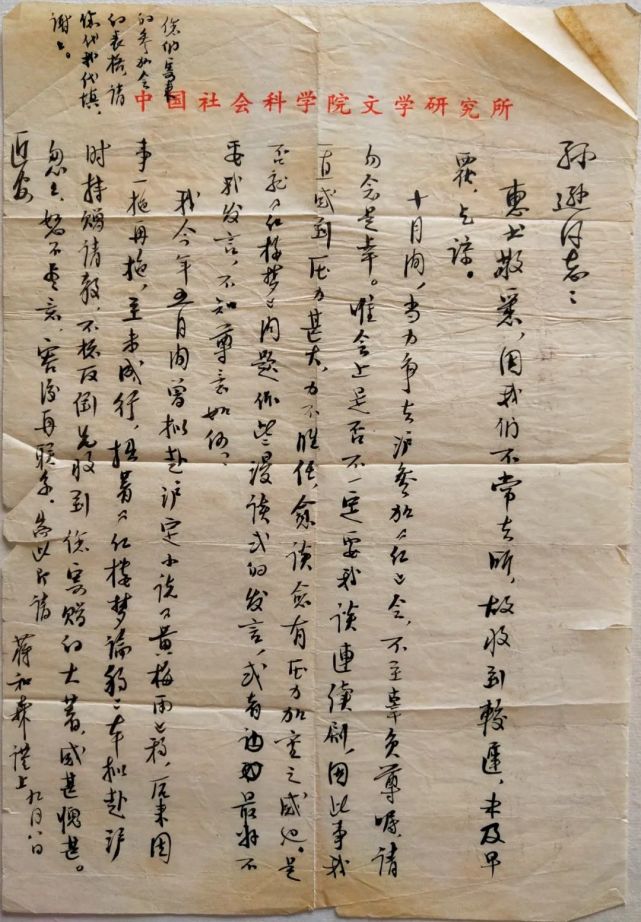 中国社会科学院文学研究所
孙逊同志：
惠书敬悉，因我们不常去所，故收到较迟，未及早
覆，乞谅。
十月间，当力争去沪参加《红》会，不至辜负尊嘱，请
勿念是幸。唯会上是否不一定要我谈连续剧，因此事我
有感到压力甚大，力不胜任，愈谈愈有压力加重之感也。是
否就《红楼梦》问题作些漫谈式的发言，或者最好不
要我发言，不知尊意如何？
我今年五月间曾拟赴沪定小说《黄梅雨》稿，后来因
事一拖再拖，至未成行，拙著《红楼梦论稿》本拟赴沪
时持赠请教，不想反倒先收到您寄赠的大著，感甚愧甚。
匆匆，恕不尽意，容后再联系。专此即请
近安
蒋和森谨上 九月八日
您们寄来
的参加会
的表格，请
您代我代填，
谢谢。